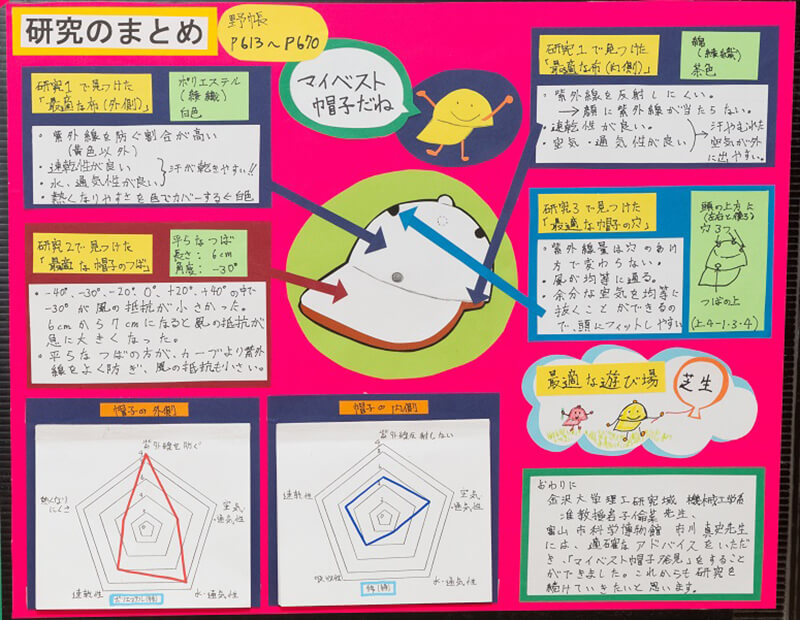 研究のまとめ
野帳
P613～P670
マイベスト
帽子だね
研究1で見つけた
「最適な布(外側)」
ポリエステル
白色
・紫外線を防ぐ割合が高い
(黄色以外)
・速乾性が良い
・水、通気性が良い
汗が乾きやすい!!
・熱くなりやすさを色でカバーする←白色
研究1で見つけた
「最適な布(内側)」
綿
茶色
・紫外線を反射しにくい。
→顔に紫外線が当たらない。
・速乾性が良い。
・空気・通気性が良い
→汗やむれた
空気が外
に出やすい。
研究2で見つけた
「最適な帽子のつば」
平らなつば
長さ:6cm
角度:-30°
・-40°、-30°、-20°、0°、+20°、+40°の中で
-30°が風の抵抗が小さかった。
6cmから7cmになると風の抵抗が
急に大きくなった。
・平らなつばの方が、カーブより紫外
線をよく防ぎ、風の抵抗も小さい。
研究3で見つけた
「最適な帽子の穴」
頭の上方に
(左右と後ろ)
穴3つ
つばの上
(上4-1・3・4)
・紫外線量は穴のあけ
方で変わらない。
・風が均等に通る。
・余分な空気を均等に
抜くことができるの
で、頭にフィットしやすい
最適な遊び場
芝生
帽子の外側
紫外線を防ぐ
空気
・通気性
水・通気性
速乾性
熱くなり
にくさ
ポリエステル(綾)
帽子の内側
紫外線反射しない
空気
・通気性
水・通気性
吸湿性
速乾性
おわりに
金沢大学理工研究域 機械工学系
准教授 若子倫菜先生、
富山市科学博物館 市川真史先生
には、適確なアドバイスをいただ
き、「マイベスト帽子発見」をすること
ができました。これからも研究を
続けていきたいと思います。